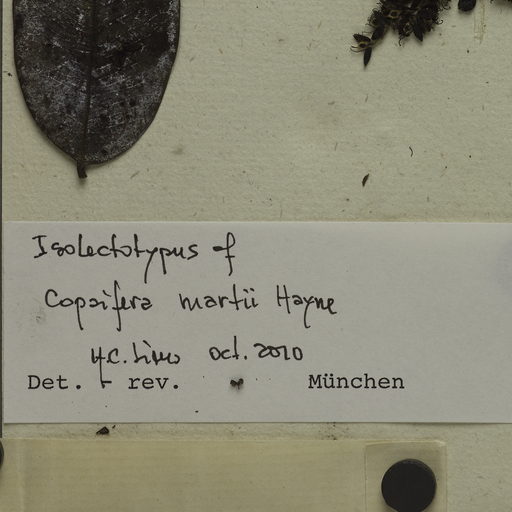 Isolectotypus of
Copaifera martii Hayne
H.C. Lima Oct. 2010
Det. - rev. München